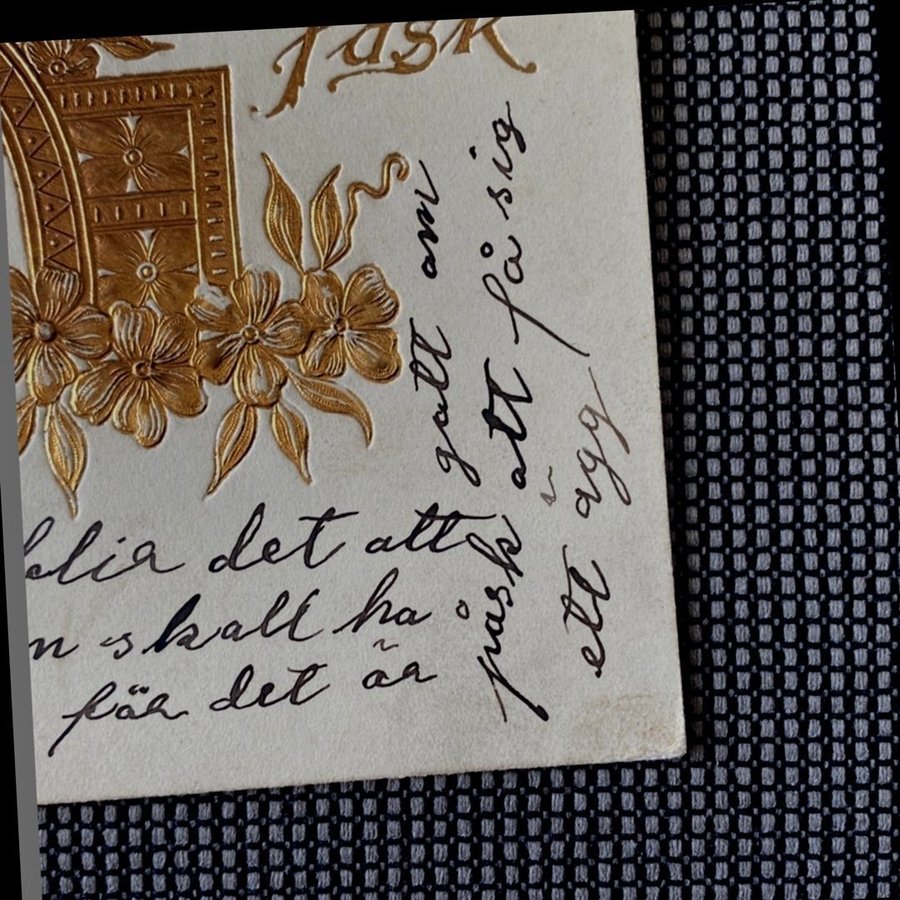 Påsk
det att
skall ha
för det är
gott om
påsk att få sig
ett ägg